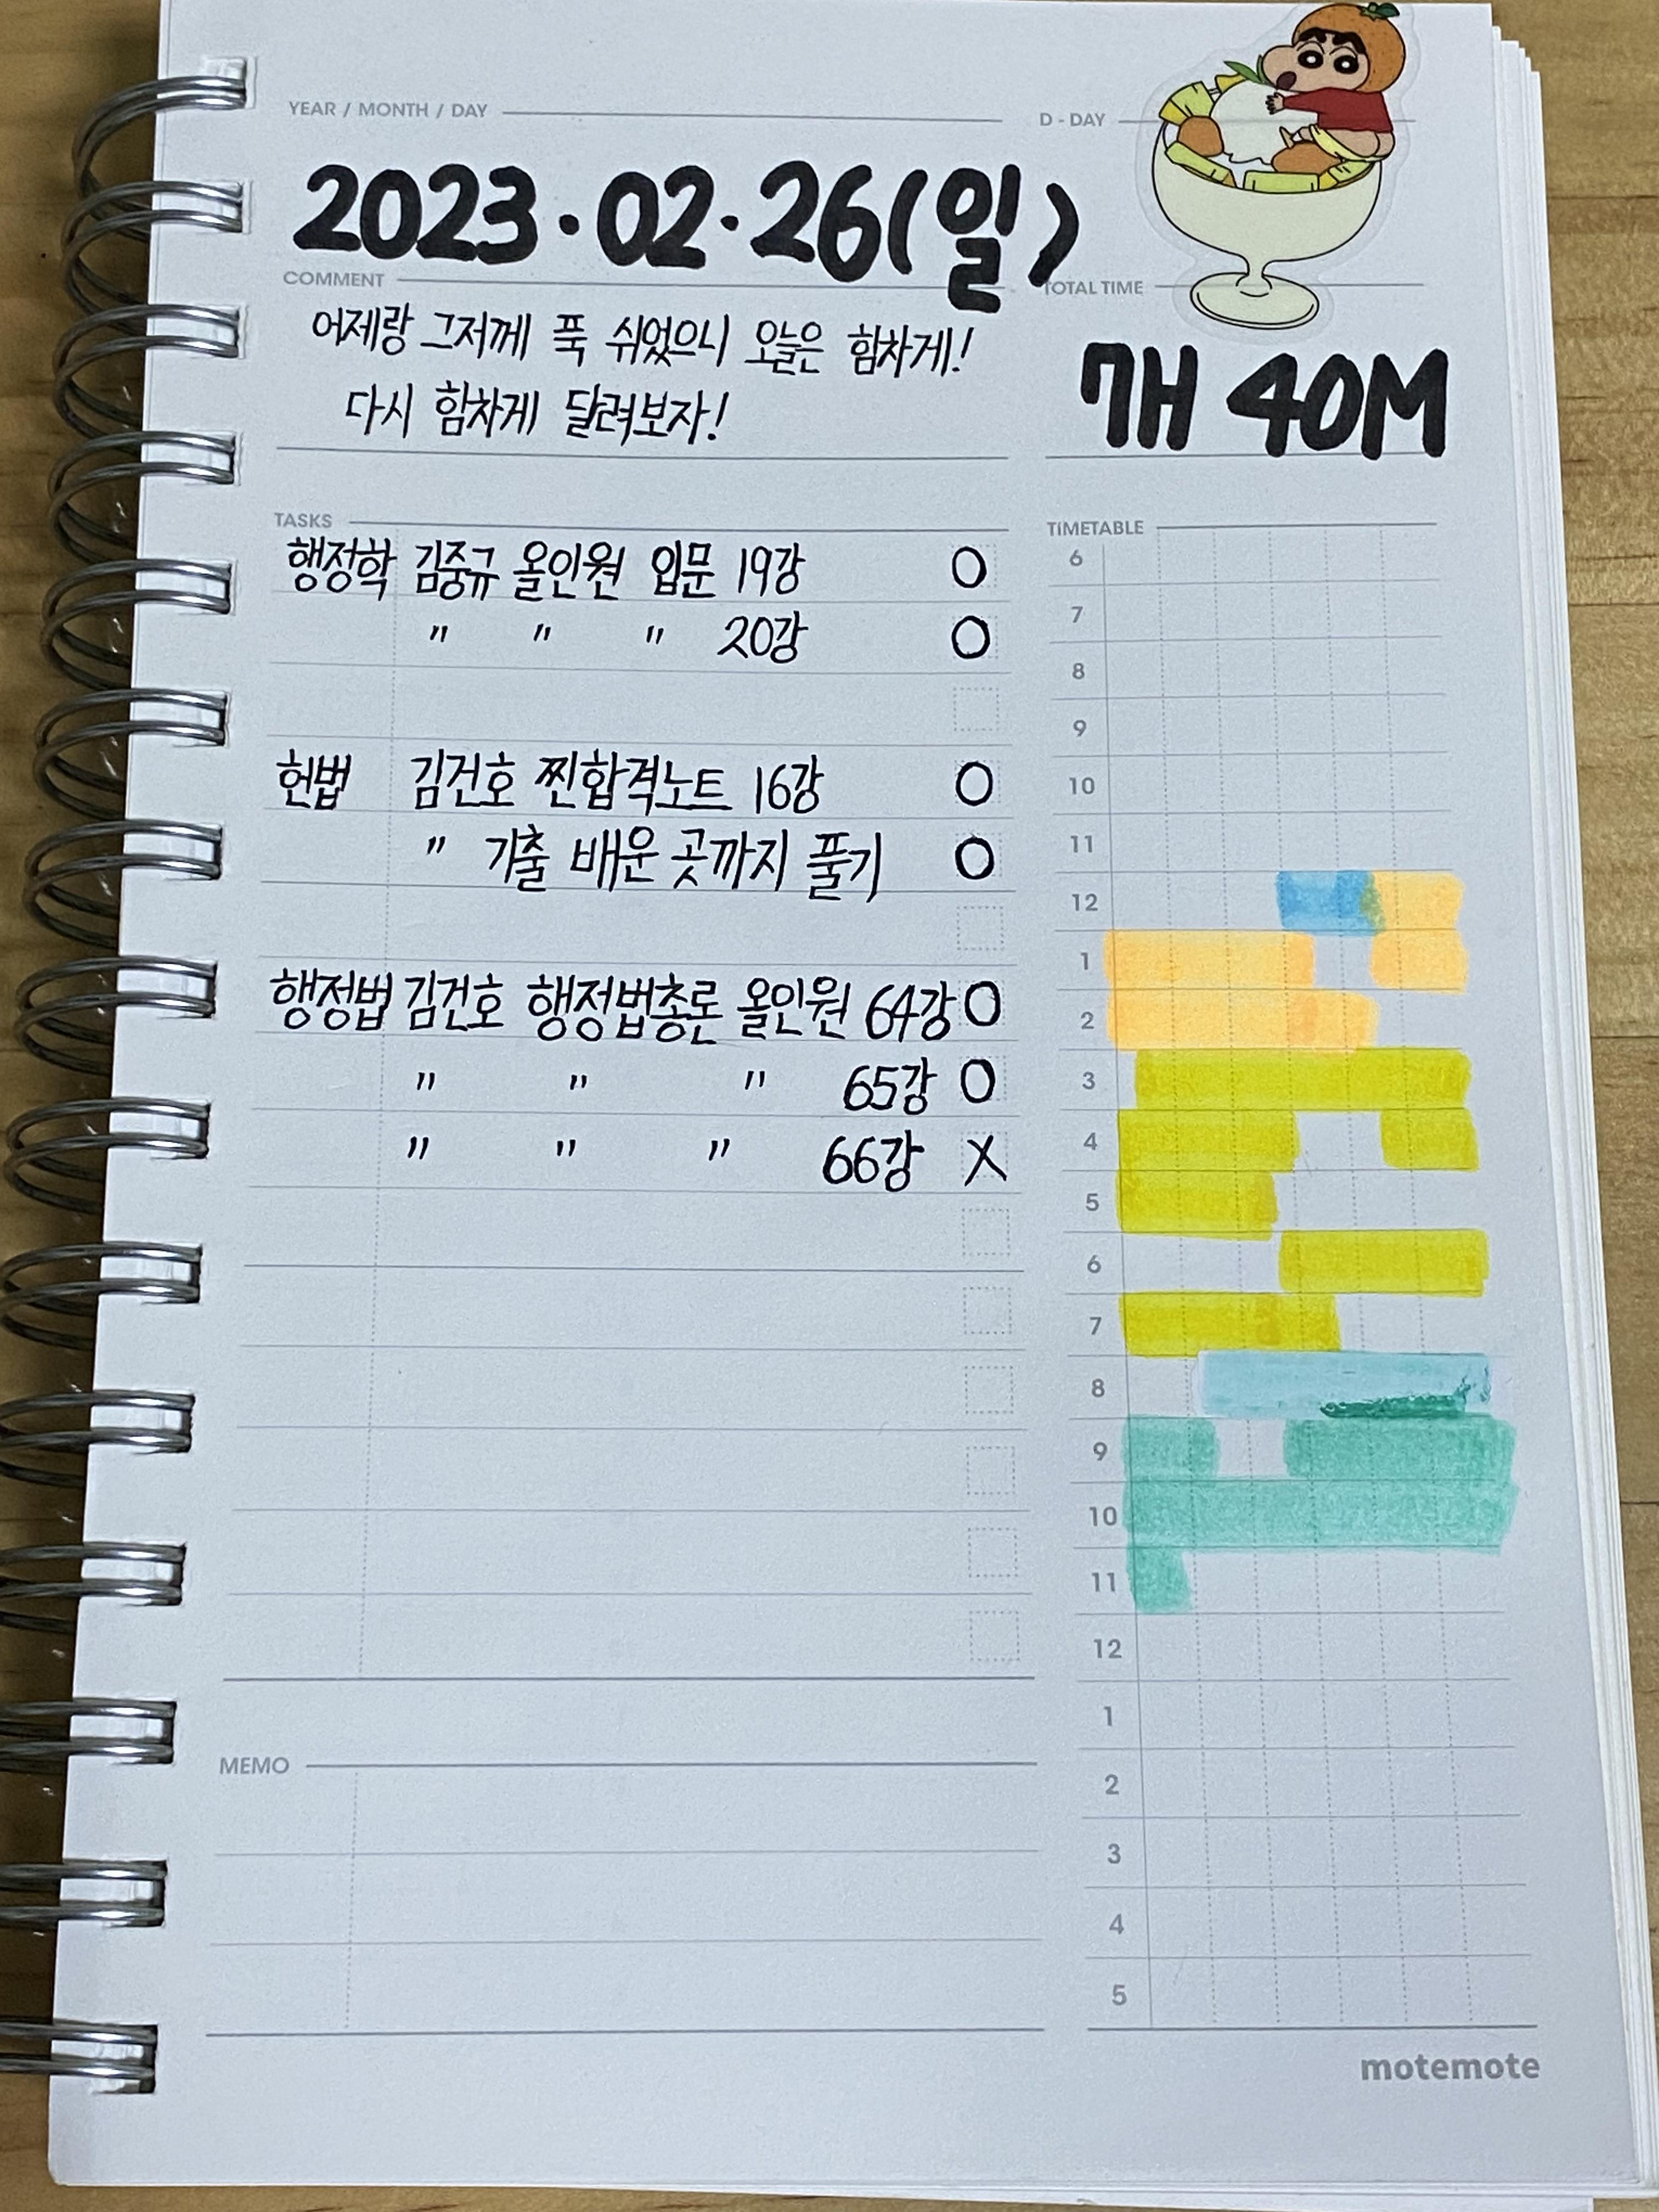 YEAR / MONTH / DAY
D - DAY
2023.02.26(일)
COMMENT
TOTAL TIME
어제랑 그저께 푹 쉬었으니 오늘은 힘차게!
다시 힘차게 달려보자!
7H 40M
TASKS
행정학 김중규 올인원 입문 19강 O
" " " 20강 O
헌법 김건호 찐합격노트 16강 O
" 기출 배운 곳까지 풀기 O
행정법 김건호 행정법총론 올인원 64강 O
" " " 65강 O
" " " 66강 X
TIMETABLE
6
7
8
9
10
11
12
1
2
3
4
5
6
7
8
9
10
11
12
1
2
3
4
5
MEMO
motemote